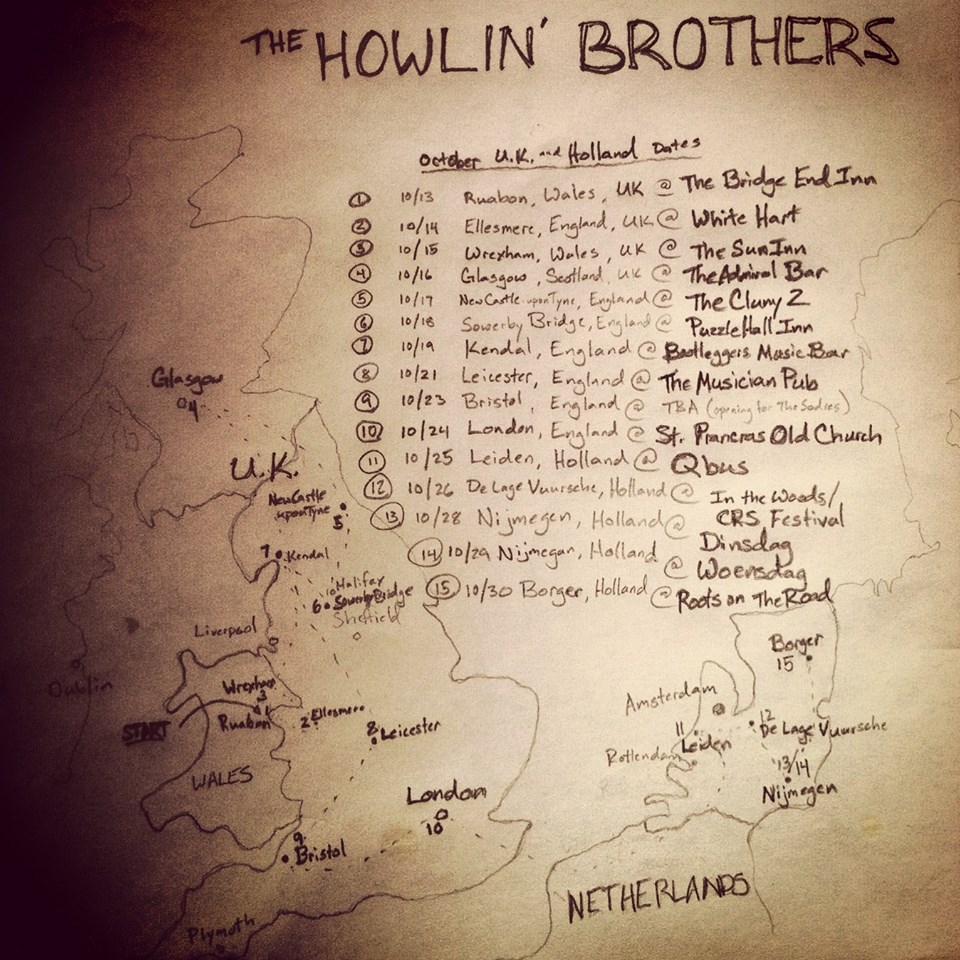 THE HOWLIN' BROTHERS
October U.K. and Holland Dates
1 10/13 Ruabon, Wales, UK @ The Bridge End Inn
2 10/14 Ellesmere, England, UK @ White Hart
3 10/15 Wrexham, Wales, UK @ The Sun Inn
4 10/16 Glasgow, Scotland, UK @ The Admiral Bar
5 10/17 NewCastle upon Tyne, England @ The Cluny 2
6 10/18 Sowerby Bridge, England @ Puzzle Hall Inn
7 10/19 Kendal, England @ Bootleggers Music Bar
8 10/21 Leicester, England @ The Musician Pub
9 10/23 Bristol, England @ TBA (opening for The Sadies)
10 10/24 London, England @ St. Prancras Old Church
11 10/25 Leiden, Holland @ Qbus
12 10/26 De Lage Vuursche, Holland @ In the Woods/
CRS Festival
13 10/28 Nijmegen, Holland @ Dinsdag
14 10/29 Nijmegan, Holland @ Woensdag
15 10/30 Borger, Holland @ Roots on The Road
Glasgow
4
U.K.
NewCastle
upon Tyne
5
7 Kendal
Halifax
6 Sowerby Bridge
Sheffield
Liverpool
Dublin
Wrexham
3
1
Ruabon
START
2 Ellesmere
8 Leicester
WALES
London
10
9
Bristol
Plymoth
Borger
15
Amsterdam
11
Leiden
12
De Lage Vuursche
Rottendam
13/14
Nijmegen
NETHERLANDS